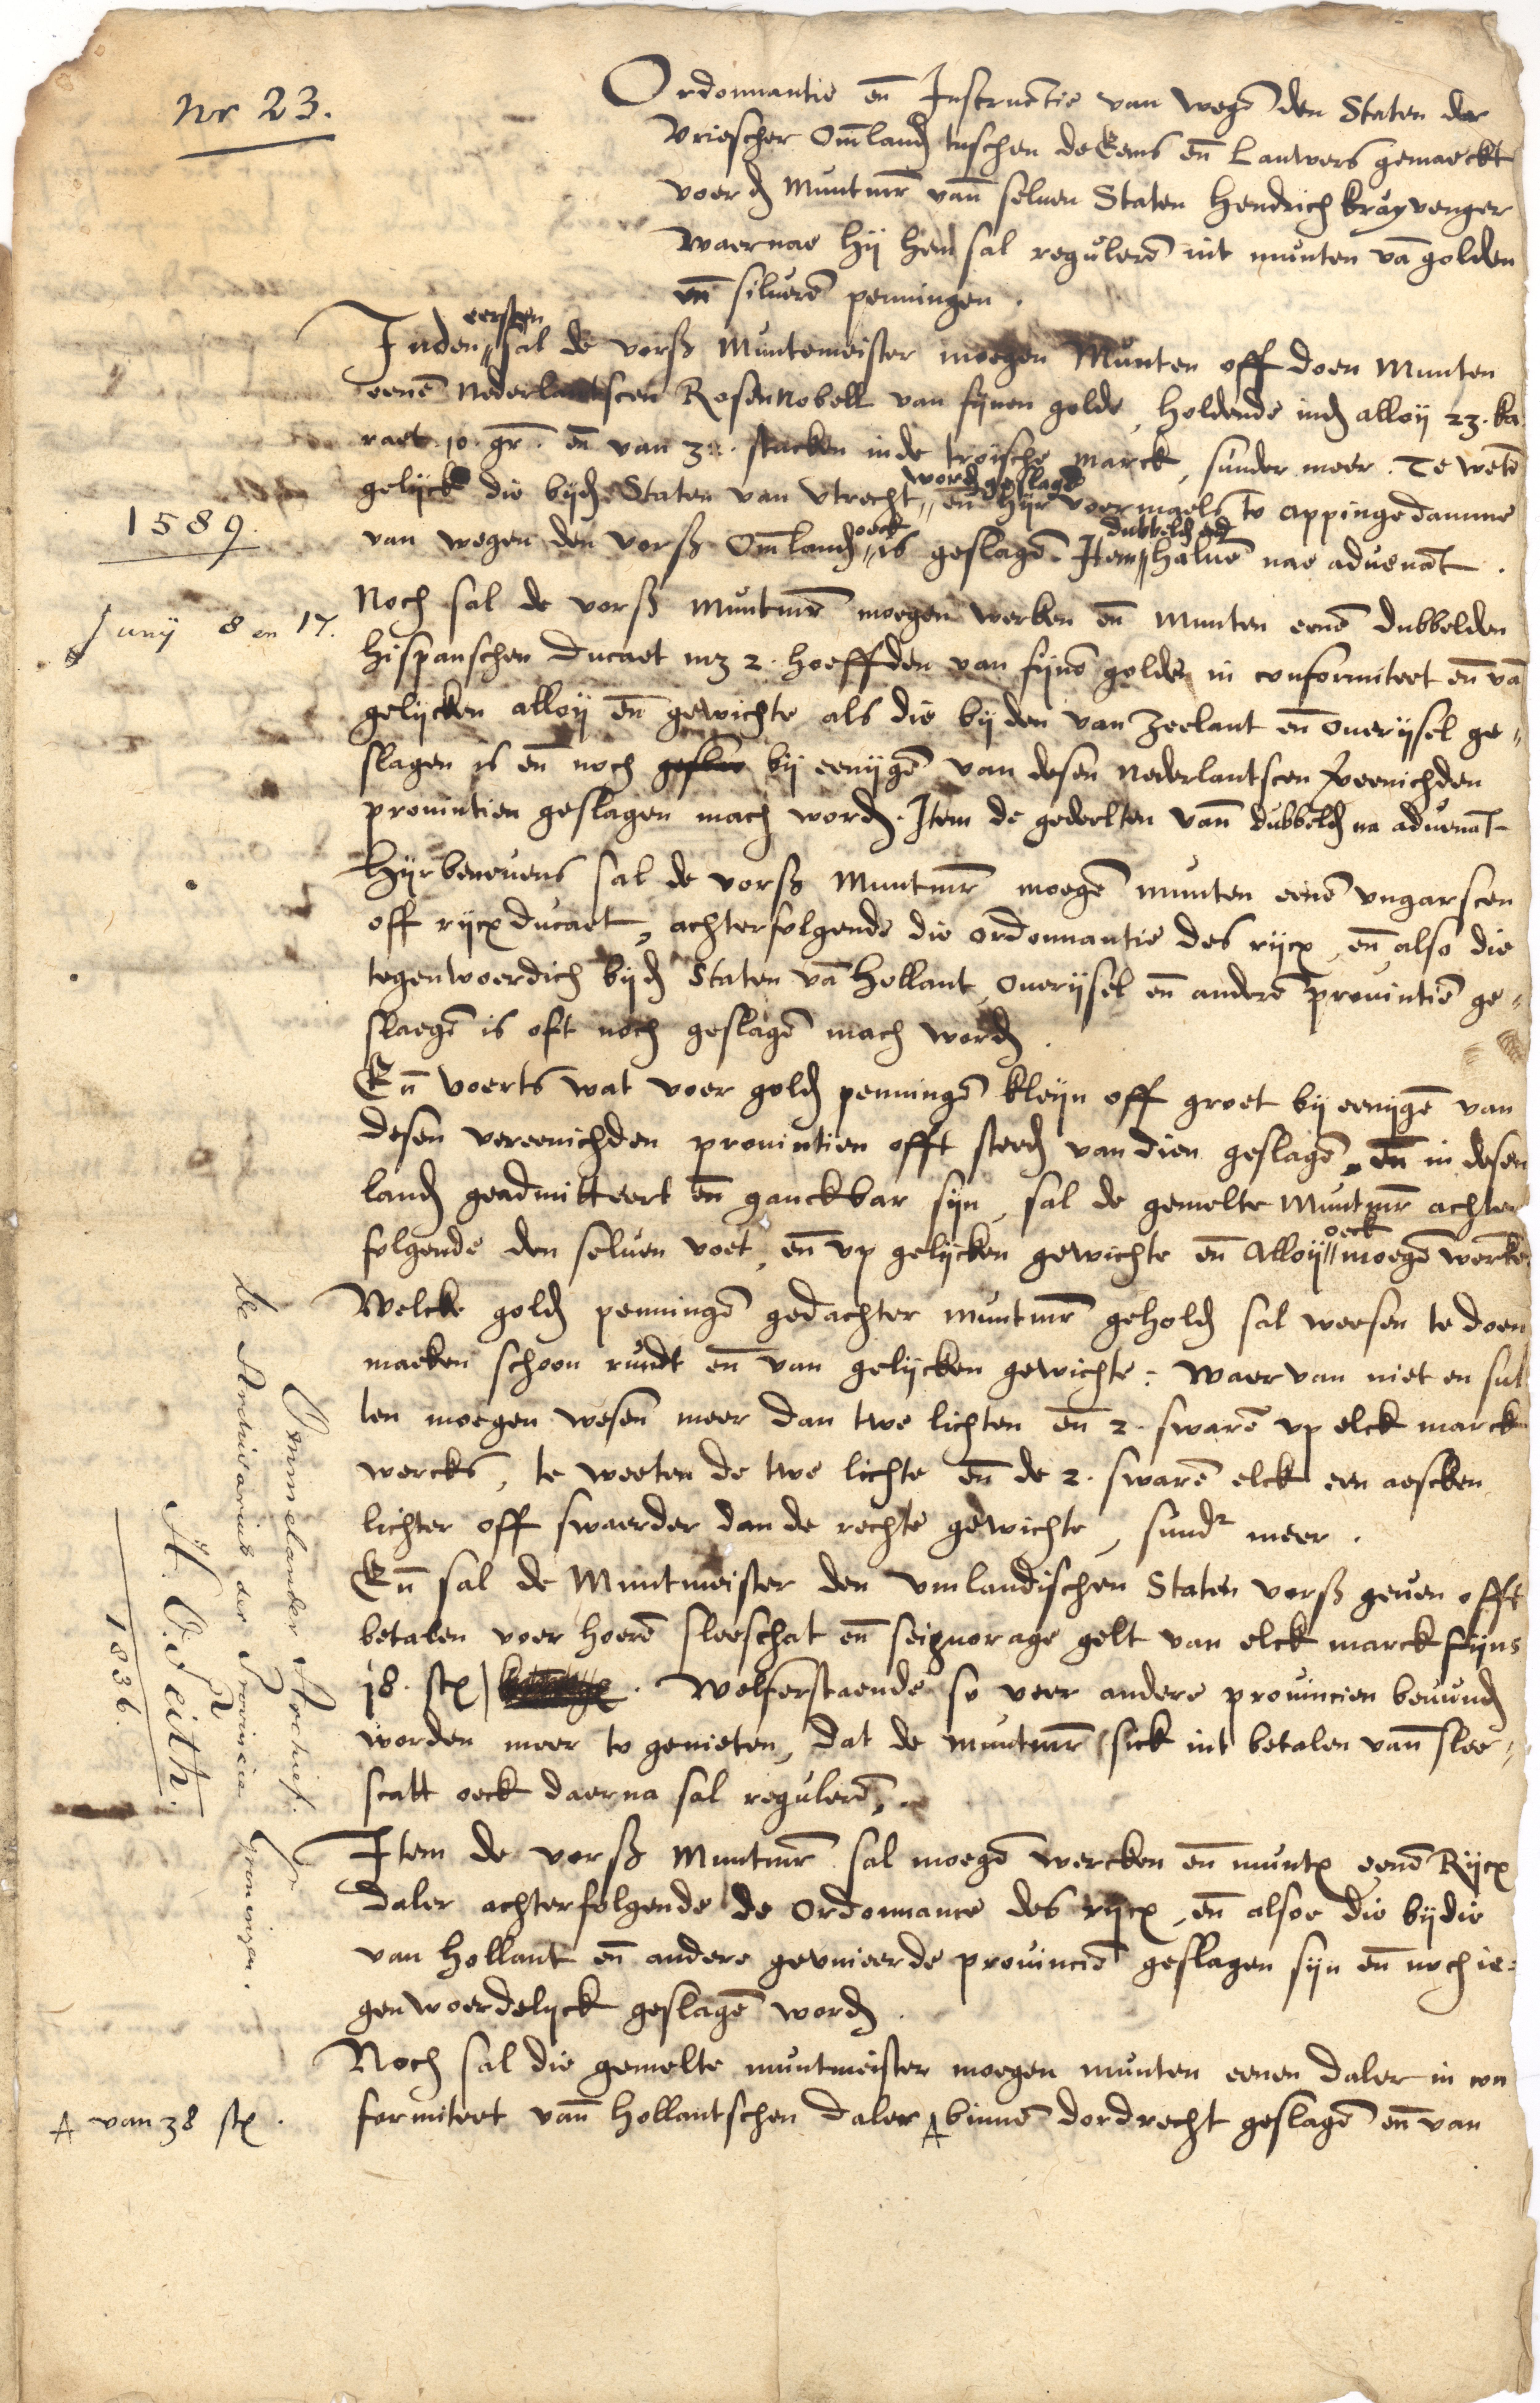 Nr 23.
Ordonnantie en̄ Instructie van wegē den Staten der
Vriescher Om̄land tuschen de Eems en̄ Lauwers gemaeckt
voer d Muntmr̄ van̄ seluen Staten Hendrich Krayvenger
waernae hij hem sal regulerē int munten vā golden
en̄ siluerē penningen.
Inden eersten sal de vorß Muntemeister moegen Munten off doen Munten
eenē Nederlantscen Rosennobell van fynen golde, holdende ind alloy 23. ka
raet 10. gr̄. en̄ van stucken inde troische marck, sunder meer. Te wetē
gelyck die byd Staten van Vtrecht word geslagē en̄ hyr voermaels to Appingedamme
van wegen den vorß Om̄land oeck is geslagē. Item dubbeld halue nae aduenāt.
1589.
Junij 8 en 17.
Noch sal de vorß muntmr̄ moegen werken en̄ Munten eenē dubbelden
Hispanschen Ducaet mz 2. hoeffden van fynē golde in conformiteet en̄ vā
gelycken alloy en̄ gewichte als die by den van Zeelant en̄ Ouerijsel ge„
slagen is en̄ noch by eenygē van desen Nederlantscen Vereenichden
prouintien geslagen mach word. Item de gedeelten van̄ dubbeld na aduenāt
Hyrbeneuens sal de vorß Muntmr̄ moegē munten eenē vngarscen
off rycx ducaet, achterfolgende die ordonnantie des rycx, en̄ also die
tegenwoerdich byd Staten vā Hollant, Ouerijsel en̄ anderē prouintiē ge„
slaegē is oft noch geslagē mach word.
En̄ voerts wat voer gold penningē kleyn off groet by eenygē van
desen vereenichden prouintien offt steed van dien geslagē, en̄ in desen
land geadmitteert en̄ ganckbar syn, sal de gemelte Muntmr̄ achter
folgende den seluen voet, en̄ vp gelycken gewichte en̄ Alloy oeck moegē werkē
Welcke gold penningē gedachter muntmr̄ gehold sal weesen te doen
maeken schoon rundt en̄ van gelycken gewichte: Waer van niet en sul
len moegen wesen meer dan twe lichten en̄ 2. swarē vp elck marck
wercks, te weeten de twe lichte en̄ de 2. swarē elck een aescken
lichter off swaerder dan de rechte gewichte, sundr meer.
En̄ sal de Muntmeister den vmlandischen Staten vorß geuen offt
betalen voer hoerē sleeschat en̄ seignorage gelt van elck marck fijns
18. st. Welverstaende so veer andere prouincien beuund
worden meer to genieten, dat de muntmr̄ sick int betalen van̄ slee„
scatt oeck daerna sal regulerē.
Item de vorß Muntmr̄ sal moegē wercken en̄ munten eenē Rycx
daler achterfolgende de Ordonnance des rycx, en̄ alsoe die by die
van Hollant en̄ andere geunieerde prouinciē geslagen syn en̄ noch ie„
genwoerdelyck geslagē word.
Noch sal die gemelte muntmeister moegen munten eenen daler in con
formiteet van̄ Hollantschen daler A binnē dordrecht geslagē en̄ van
A van 38 st.
Ommelander Archief.
De Archivarius der Provincie Groningen.
H. O. Feith.
1836.